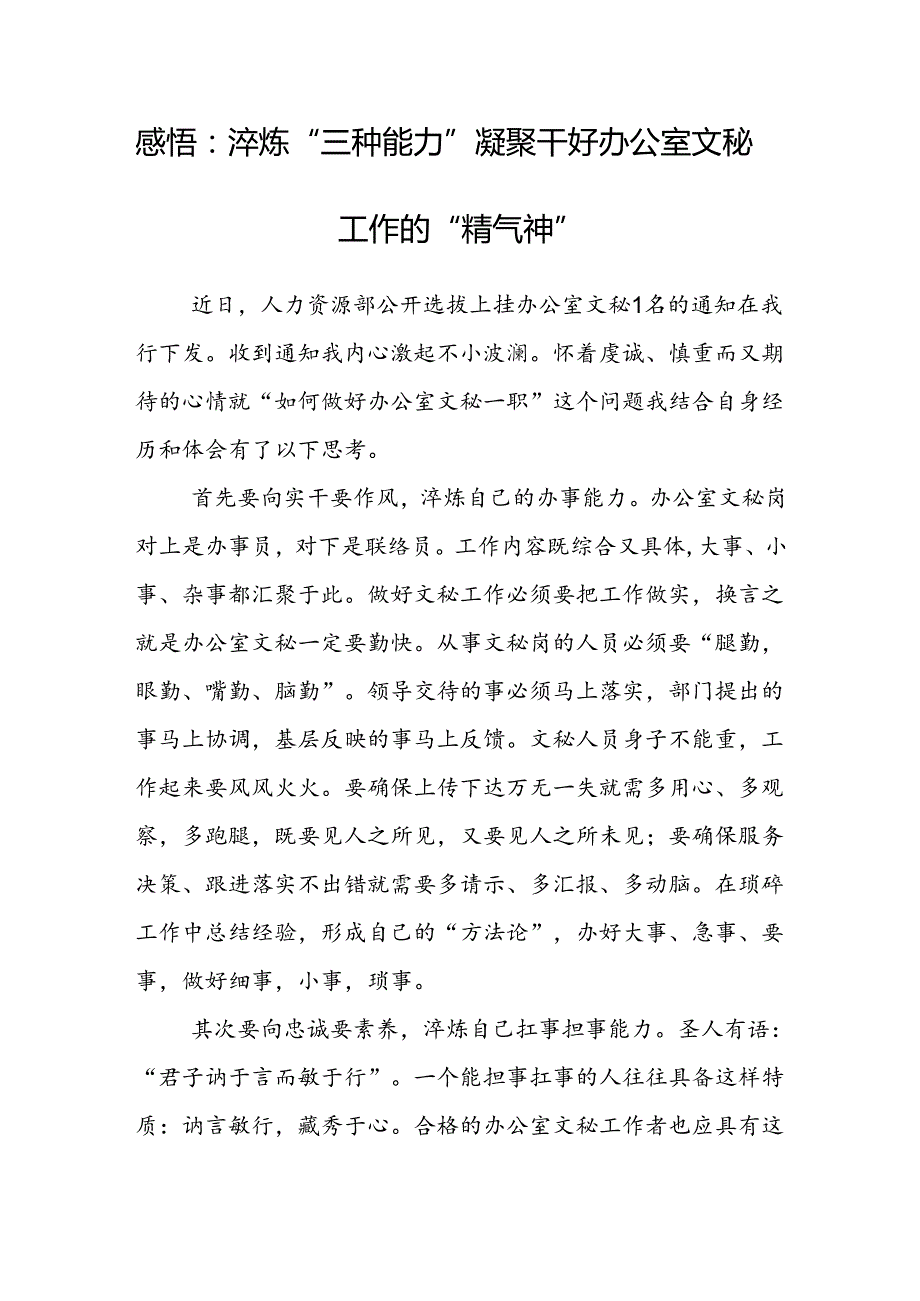 感悟：淬炼“三种能力”凝聚干好办公室文秘
工作的“精气神”
近日，人力资源部公开选拔上挂办公室文秘1名的通知在我
行下发。收到通知我内心激起不小波澜。怀着虔诚、慎重而又期
待的心情就“如何做好办公室文秘一职”这个问题我结合自身经
历和体会有了以下思考。
首先要向实干要作风，淬炼自己的办事能力。办公室文秘岗
对上是办事员，对下是联络员。工作内容既综合又具体,大事、小
事、杂事都汇聚于此。做好文秘工作必须要把工作做实，换言之
就是办公室文秘一定要勤快。从事文秘岗的人员必须要“腿勤，
眼勤、嘴勤、脑勤”。领导交待的事必须马上落实，部门提出的
事马上协调，基层反映的事马上反馈。文秘人员身子不能重，工
作起来要风风火火。要确保上传下达万无一失就需多用心、多观
察，多跑腿，既要见人之所见，又要见人之所未见；要确保服务
决策、跟进落实不出错就需要多请示、多汇报、多动脑。在琐碎
工作中总结经验，形成自己的“方法论”，办好大事、急事、要
事，做好细事，小事，琐事。
其次要向忠诚要素养，淬炼自己扛事担事能力。圣人有语：
“君子讷于言而敏于行”。一个能担事扛事的人往往具备这样特
质：讷言敏行，藏秀于心。合格的办公室文秘工作者也应具有这